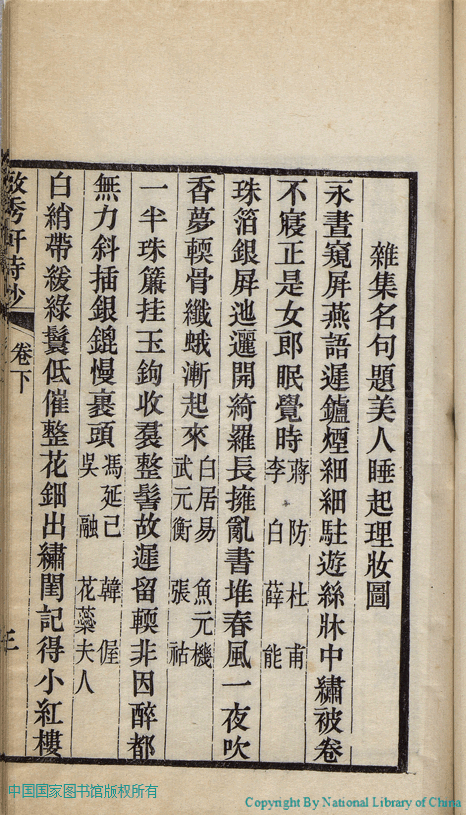 雜集名句題美人睡起理妝圖
永晝窺屏燕語遲鑪煙細細駐遊絲牀中繡被卷
不寢正是女郎眠覺時
蔣防 杜甫
李白 薛能
珠箔銀屏迤邐開綺羅長擁亂書堆春風一夜吹
香夢輭骨纖蛾漸起來
白居易 魚元機
武元衡 張祜
一半珠簾挂玉鉤收裠整髻故遲留輭非因醉都
無力斜插銀鎞慢裹頭
馮延己 韓偓
吳融 花蘂夫人
白綃帶緩綠鬟低催整花鈿出繡閨記得小紅樓
秀軒詩鈔
卷下
中国国家图书馆版权所有
Copyright By National Library of China